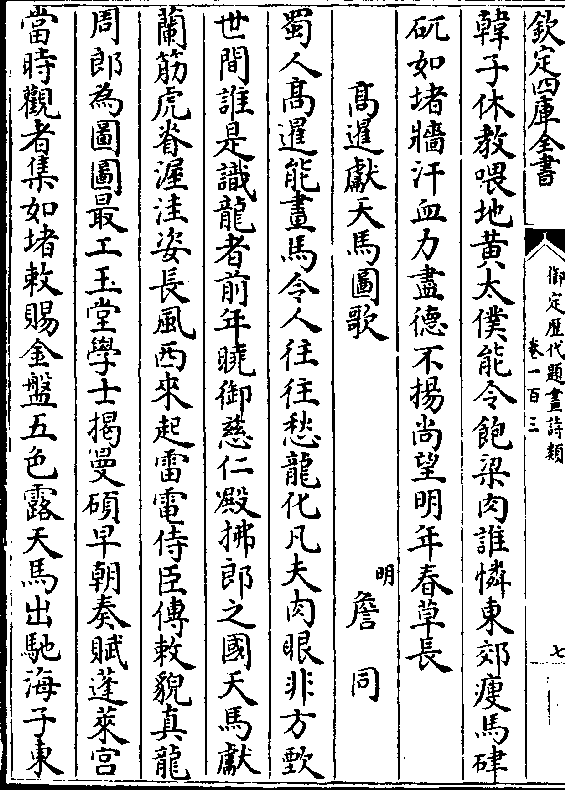 欽定四庫全書
御定歷代題畫詩類
卷一百三
七
韓子休教喂地黃太僕能令飽梁肉誰憐東郊瘦馬硉
矹如堵牆汗血力盡德不揚尚望明年春草長
髙暹獻天馬圖歌
明
詹同
蜀人髙暹能畫馬令人往往愁龍化凡夫肉眼非方歅
世間誰是識龍者前年曉御慈仁殿拂郎之國天馬獻
蘭筋虎脊渥洼姿長風西來起雷電侍臣傳敕貌真龍
周郎為圖圖最工玉堂學士揭曼碩早朝奏賦蓬萊宮
當時觀者集如堵敕賜金盤五色露天馬出馳海子東